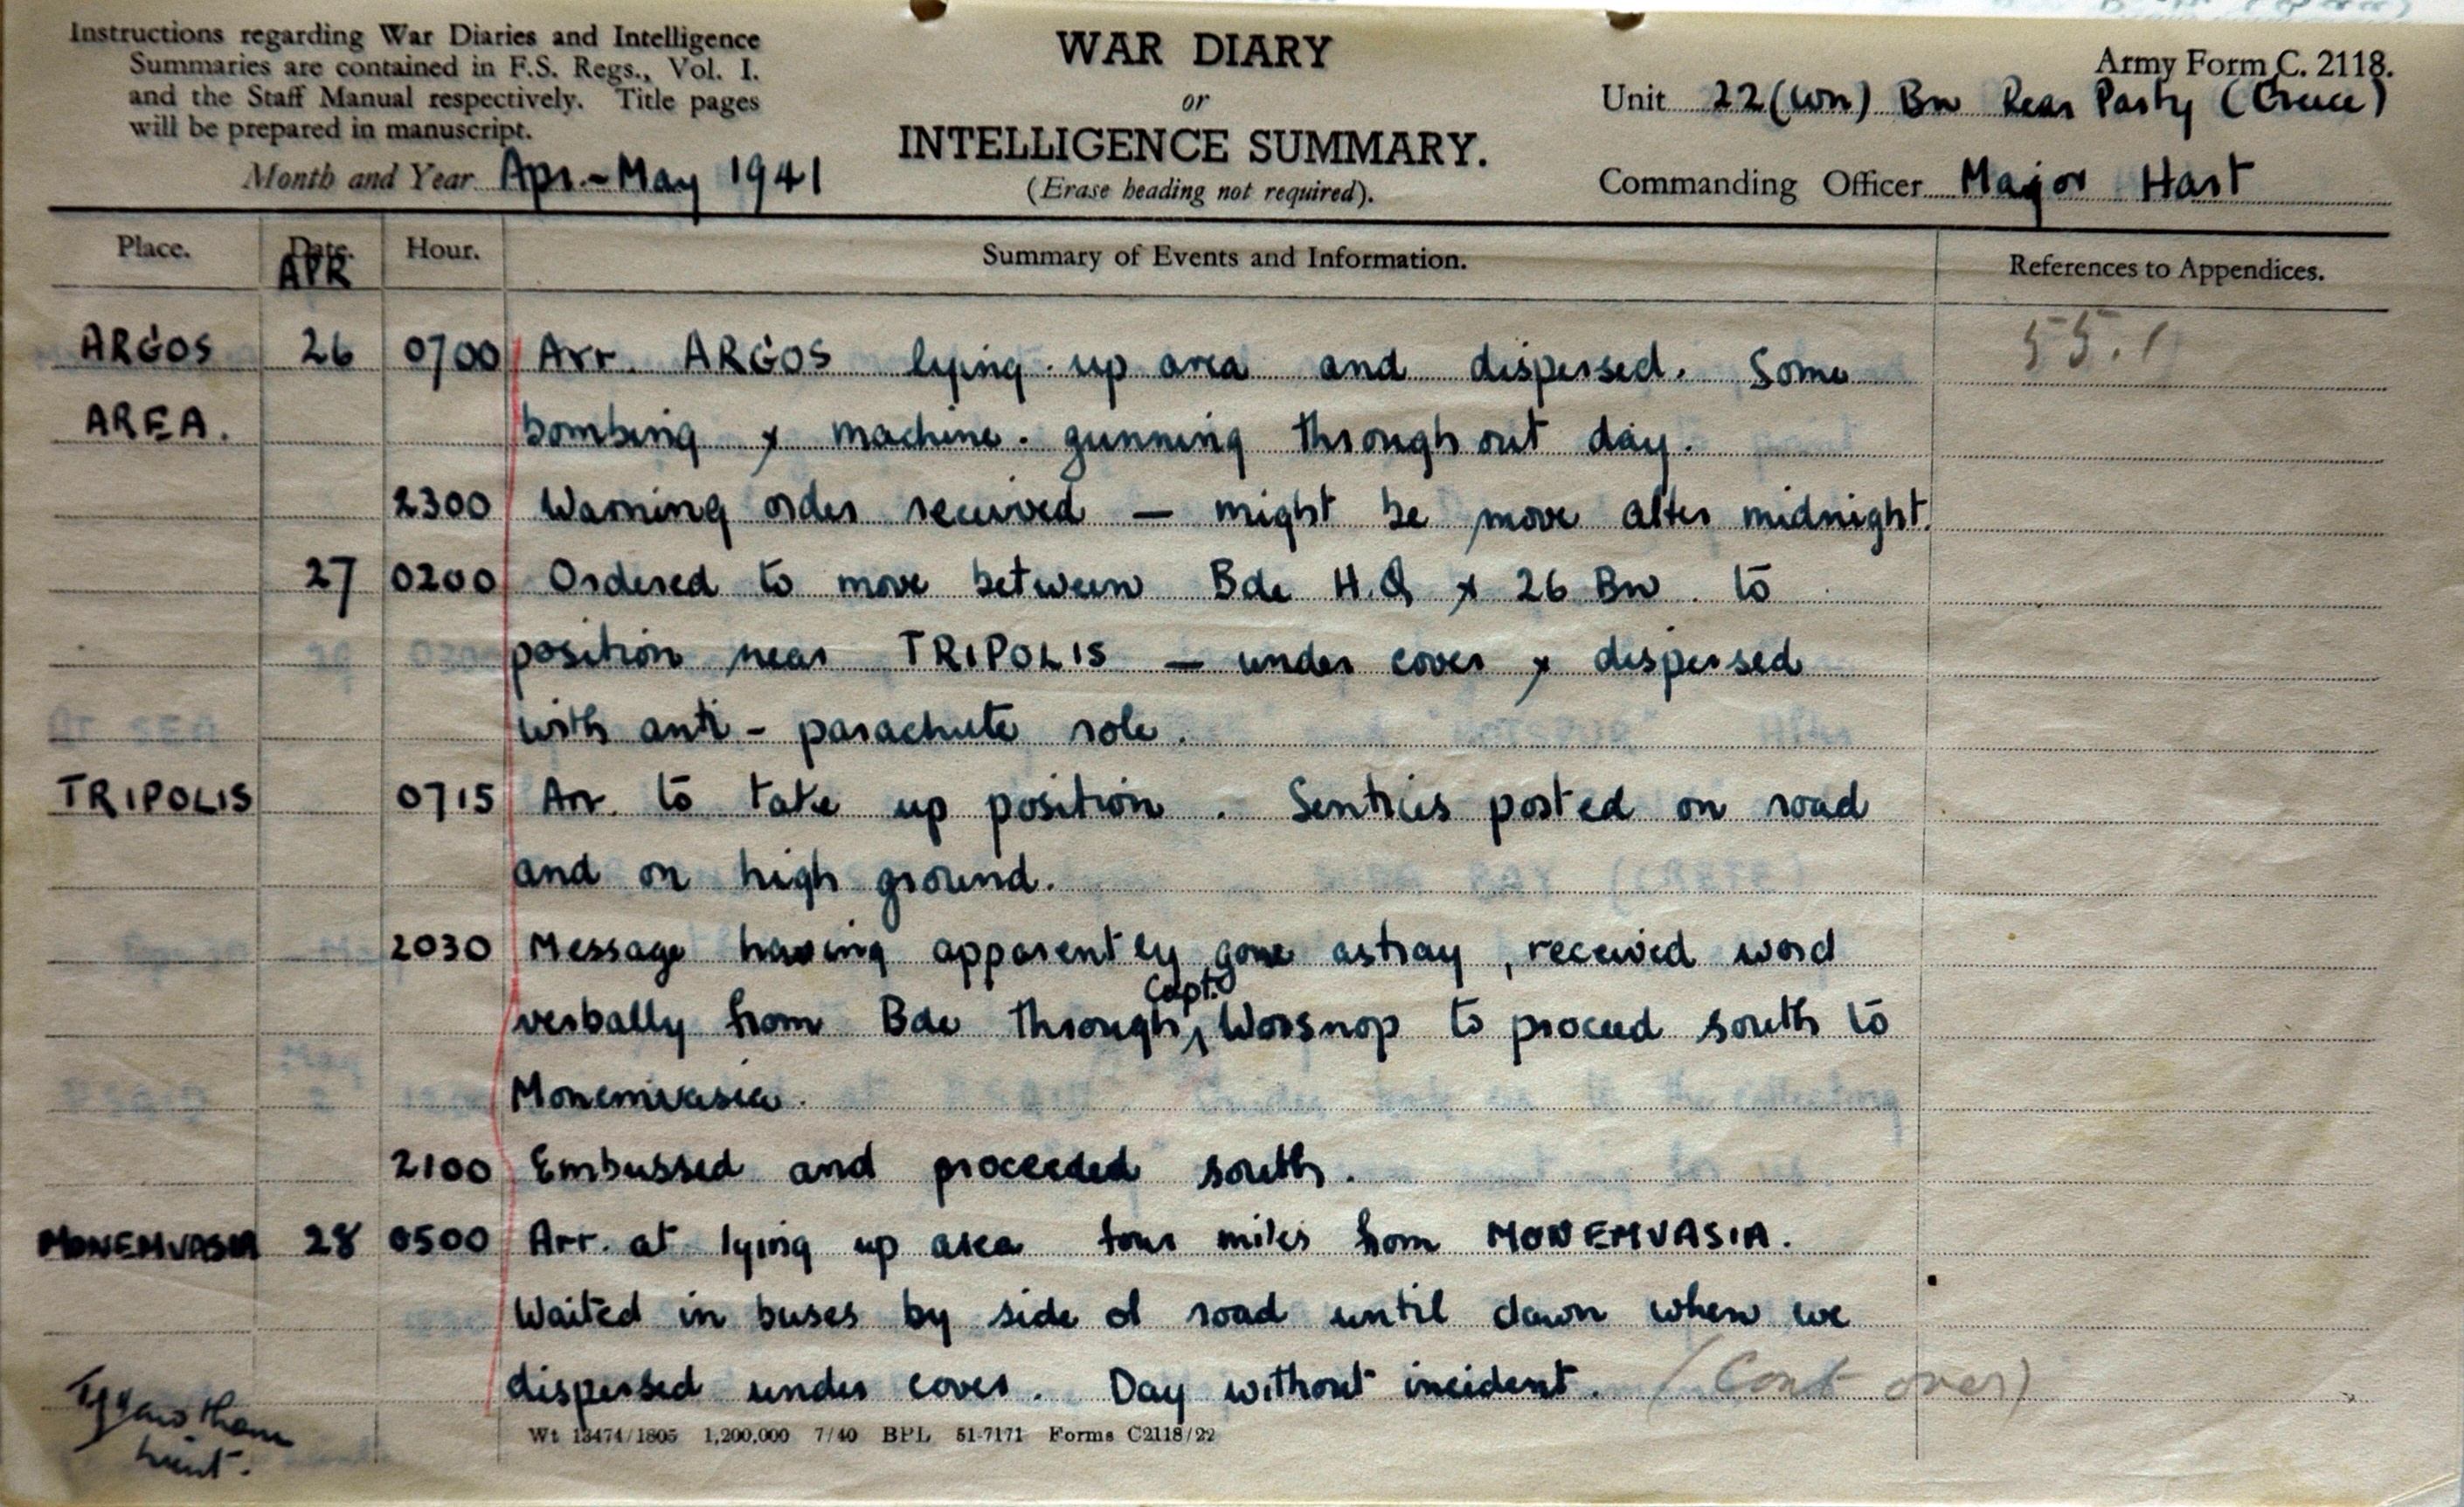 Instructions regarding War Diaries and Intelligence
Summaries are contained in F.S. Regs., Vol. I.
and the Staff Manual respectively. Title pages
will be prepared in manuscript.
Month and Year Apr.-May 1941
WAR DIARY
or
INTELLIGENCE SUMMARY.
(Erase heading not required).
Army Form C. 2118.
Unit 22 (Wn) Bn Rear Party (Greece)
Commanding Officer Major Hart
Place. Date. Hour. Summary of Events and Information. References to Appendices.
APR
ARGOS 26 0700 Arr. ARGOS lying up area and dispersed. Some 55.1
AREA. bombing & machine-gunning throughout day.
2300 Warning order received — might be move after midnight.
27 0200 Ordered to move between Bde H.Q & 26 Bn to
position near TRIPOLIS — under cover & dispersed
with anti-parachute role.
TRIPOLIS 0715 Arr. to take up position. Sentries posted on road
and on high ground.
2030 Message having apparently gone astray, received word
verbally from Bde through Capt. Worsnop to proceed south to
Monemvasia.
2100 Embussed and proceeded south.
MONEMVASIA 28 0500 Arr. at lying up area four miles from MONEMVASIA.
Waited in buses by side of road until dawn when we
dispersed under cover. Day without incident. (Cont over)
Lieut.
Wt 13474/1805 1,200,000 7/40 BPL 51-7171 Forms C2118/22